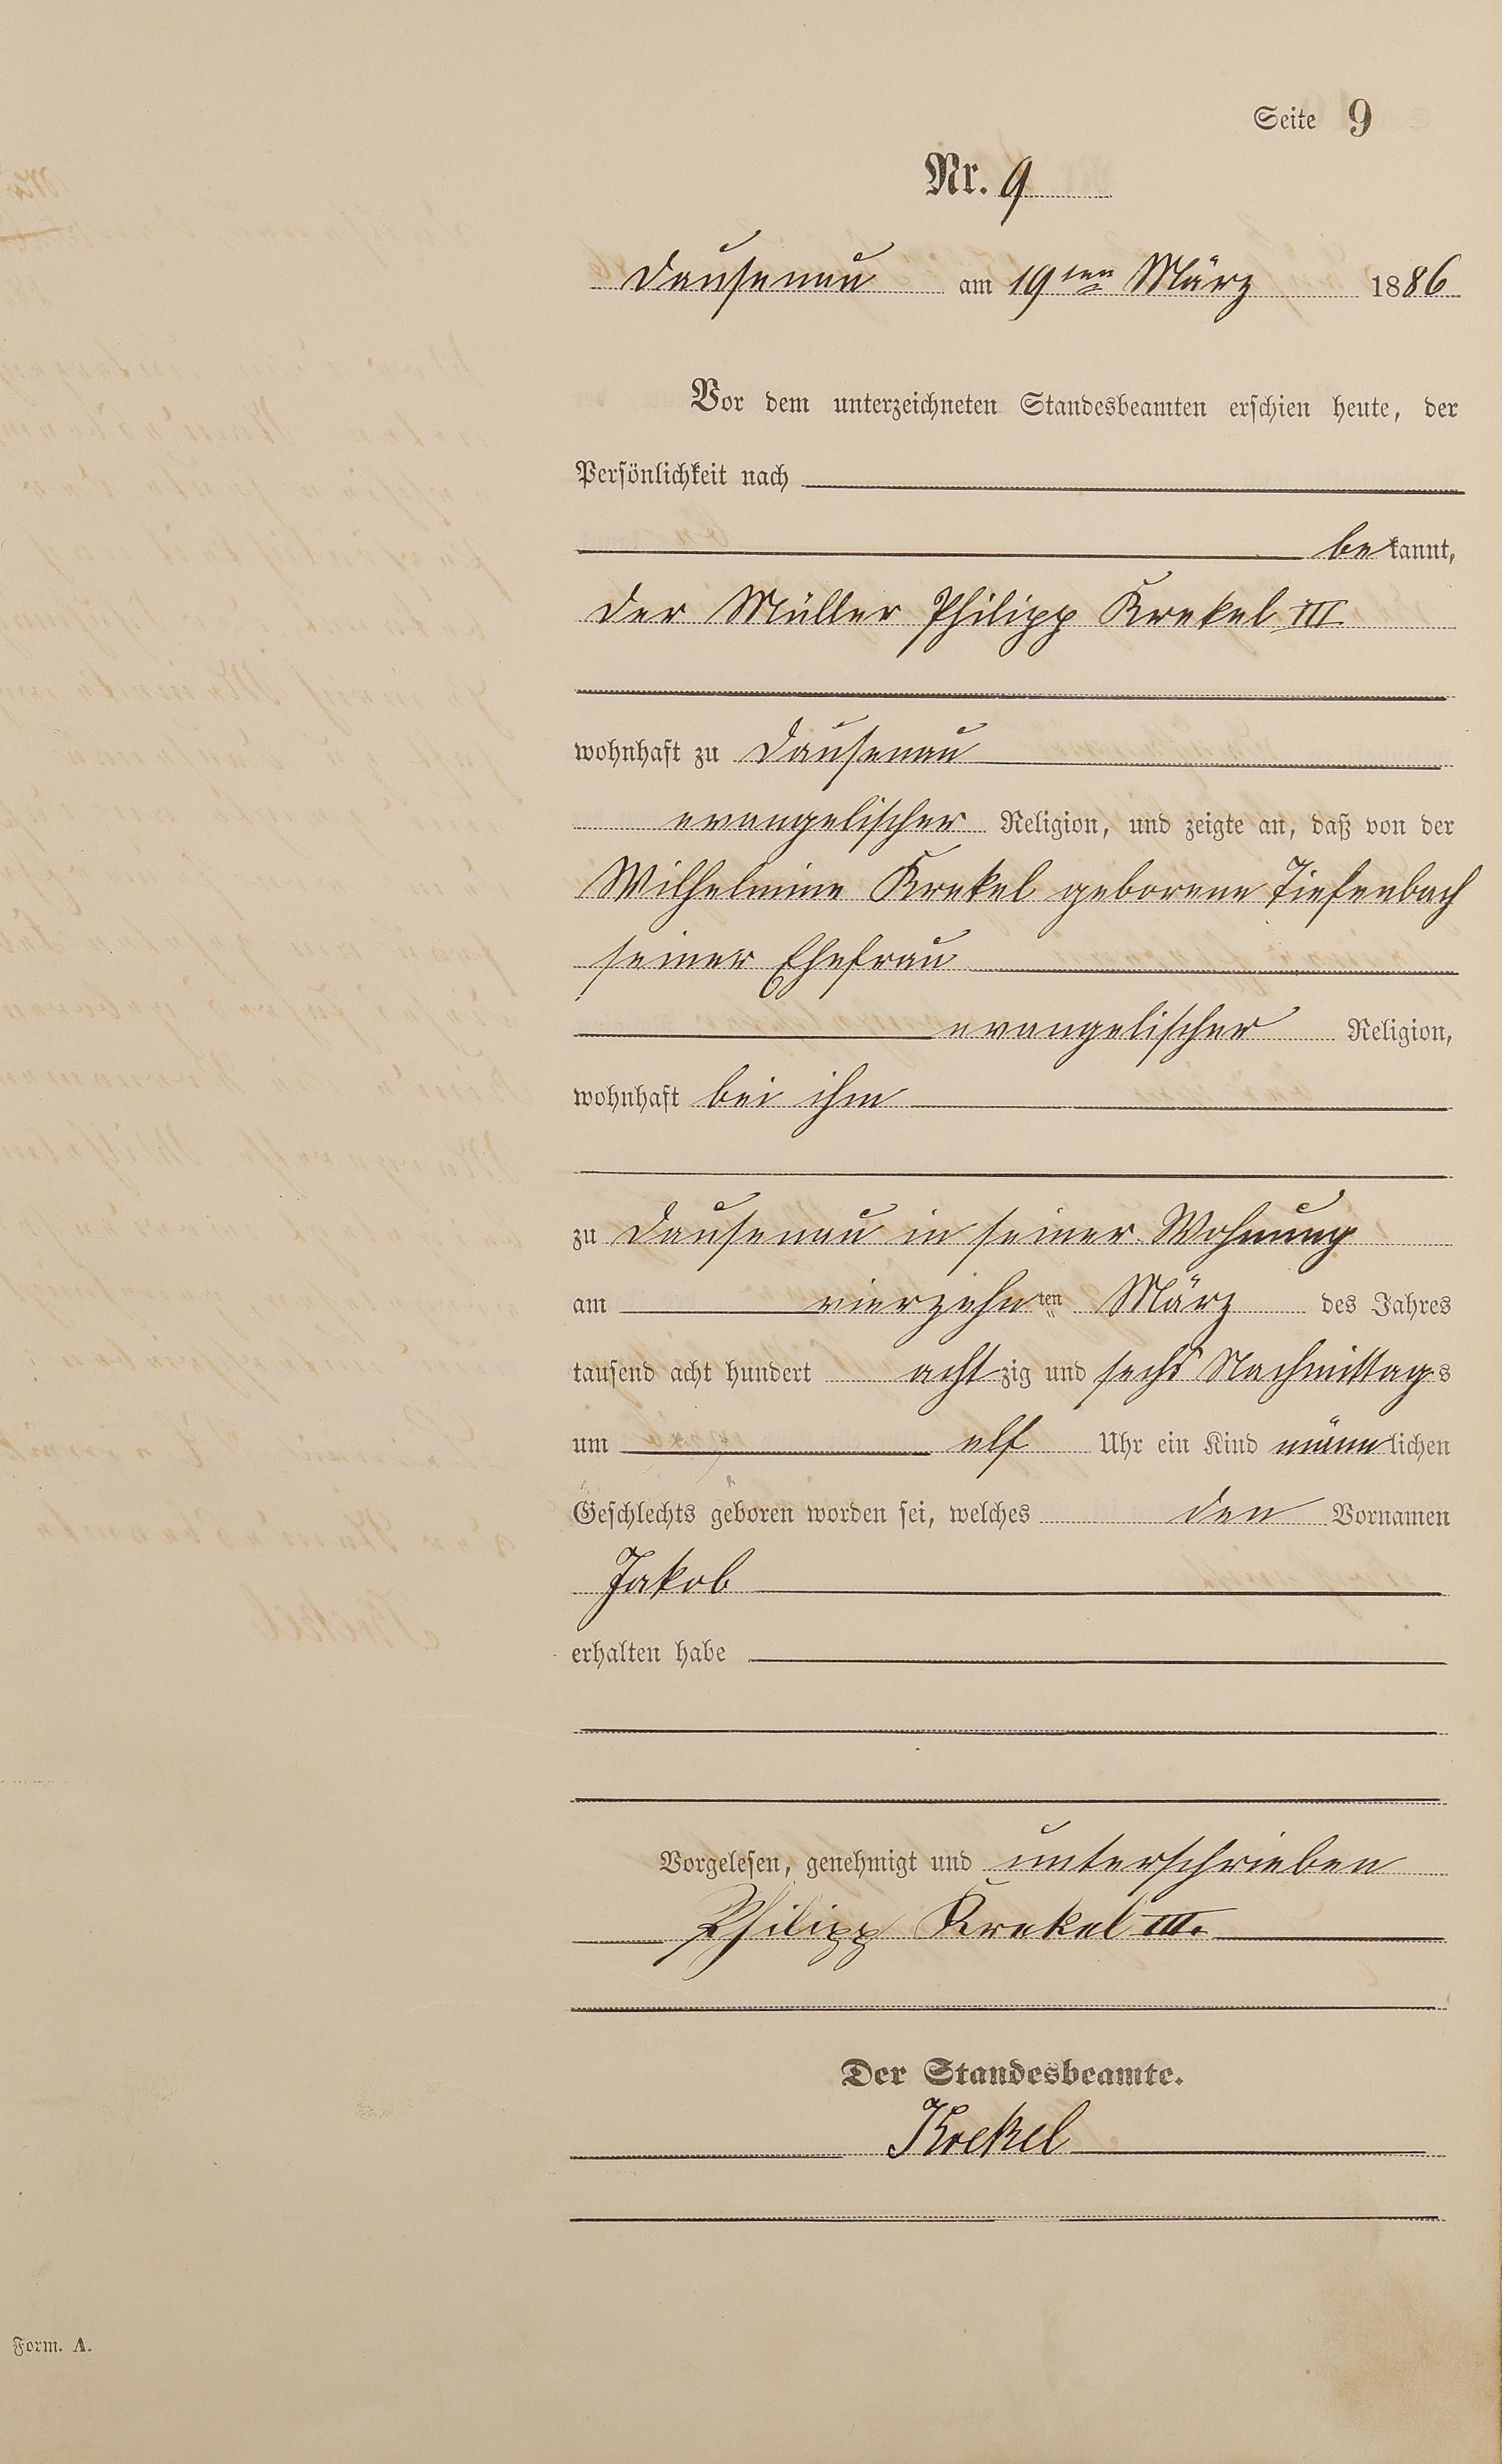 Seite 9
Nr. 9
Dausenau am 19ten März 1886
Vor dem unterzeichneten Standesbeamten erschien heute, der
Persönlichkeit nach
bekannt,
der Müller Philipp Krekel III
wohnhaft zu Dausenau
evangelischer Religion, und zeigte an, daß von der
Wilhelmine Krekel geborene Tiefenbach
seiner Ehefrau
evangelischer Religion,
wohnhaft bei ihm
zu Dausenau in seiner Wohnung
am vierzehnten März des Jahres
tausend acht hundert achtzig und sechs Nachmittags
um elf Uhr ein Kind männlichen
Geschlechts geboren worden sei, welches den Vornamen
Jakob
erhalten habe
Vorgelesen, genehmigt und unterschrieben
Philipp Krekel III.
Der Standesbeamte.
Krekel
Form. A.